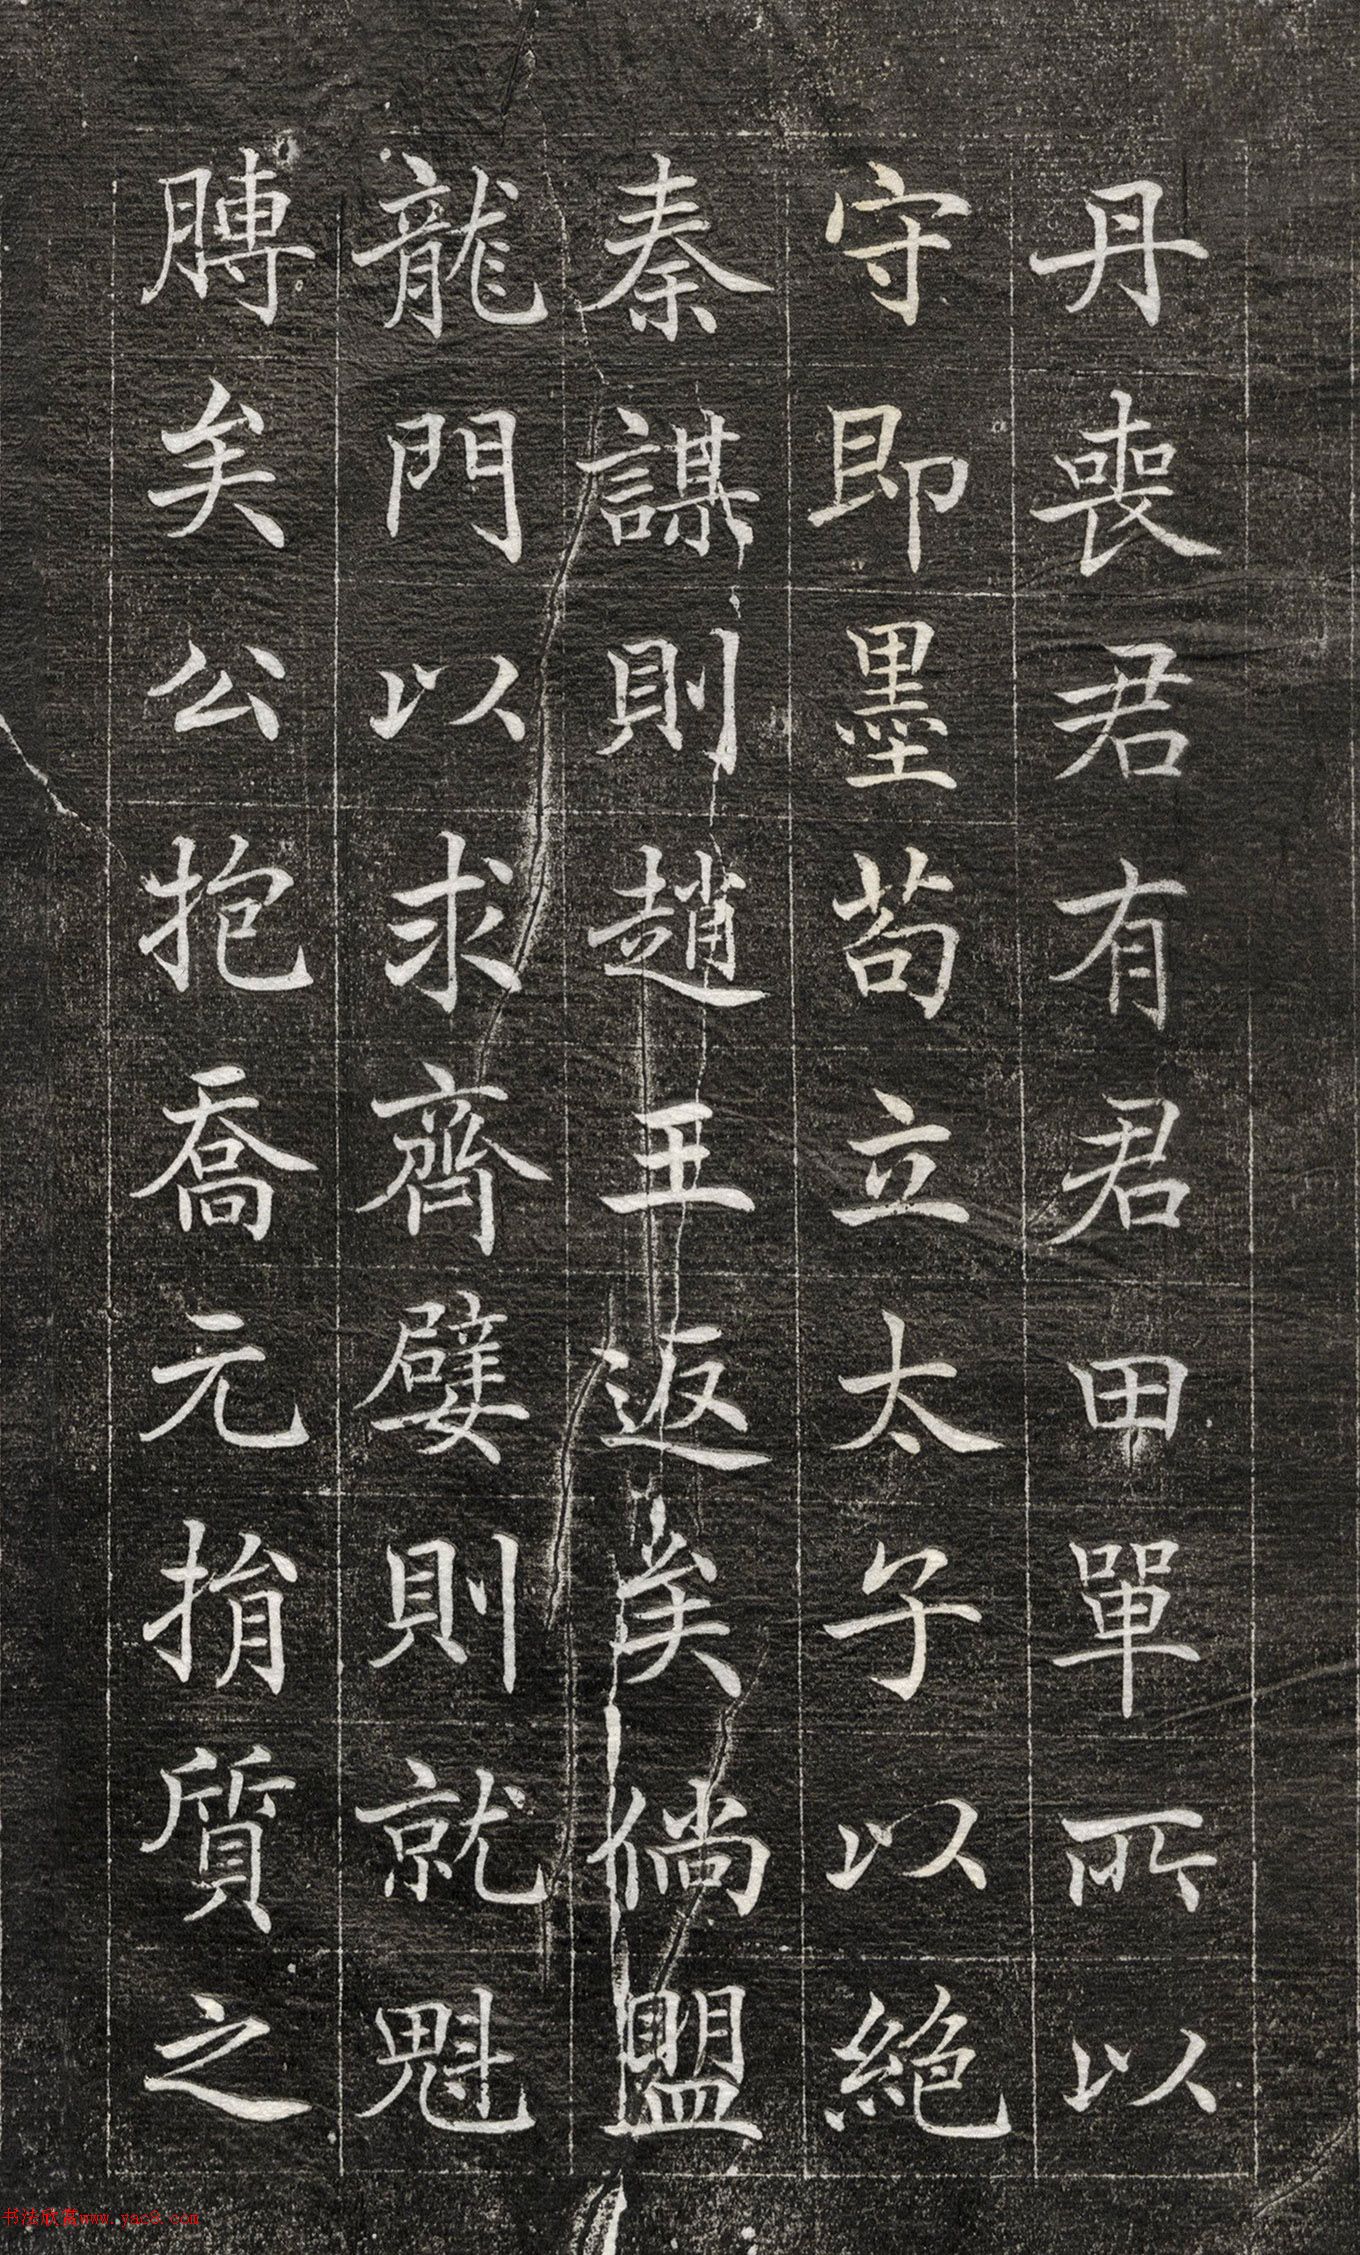 丹喪君有君田單所以
守即墨苟立太子以絕
秦謀則趙王返矣倘盟
龍門以求齊嬖則就魁
膊矣公抱喬元捐質之
书法欣赏www.yac8.com